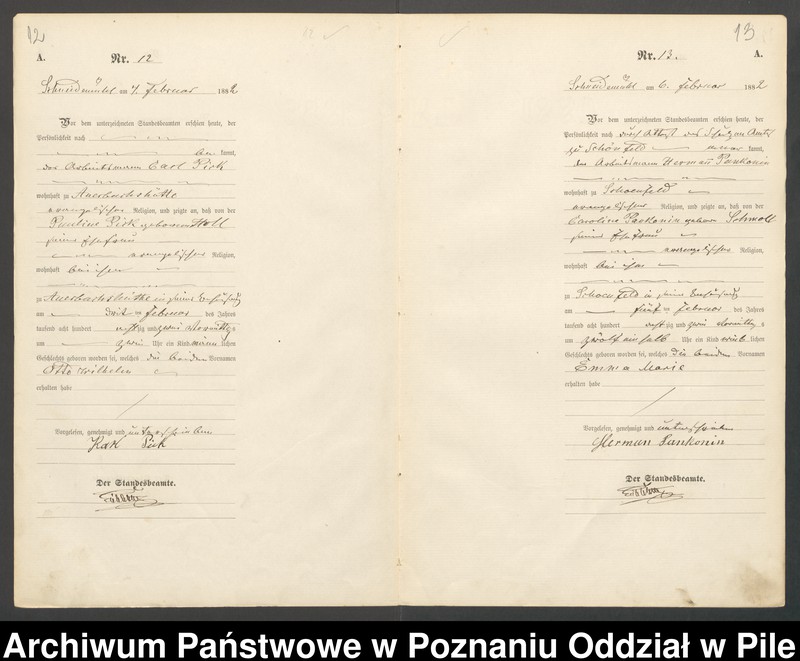 12
A.
Nr. 12
Schneidemühl am 4. Februar 1882
Vor dem unterzeichneten Standesbeamten erschien heute, der
Persönlichkeit nach
be kannt,
der Arbeitsmann Carl Pick
wohnhaft zu Auerbachshütte
evangelischer Religion, und zeigte an, daß von der
Pauline Pick geborenen
seiner Ehefrau
evangelischer Religion,
wohnhaft bei ihm
zu Auerbachshütte in seiner Behausung
am Februar des Jahres
tausend acht hundert achtzig und zwei Vormittags
um zwei Uhr ein Kind männlichen
Geschlechts geboren worden sei, welches die beiden Vornamen
Otto Wilhelm
erhalten habe
Vorgelesen, genehmigt und unterschrieben
Karl Pick
Der Standesbeamte.
13
A.
Nr. 13.
Schneidemühl am 6. Februar 1882
Vor dem unterzeichneten Standesbeamten erschien heute, der
Persönlichkeit nach durch Attest des Schulzen Amts
zu Schönfeld aner kannt,
der Arbeitsmann Herman Pankonin
wohnhaft zu Schoenfeld
evangelischer Religion, und zeigte an, daß von der
Caroline Pankonin geboren Schmoll
seiner Ehefrau
evangelischer Religion,
wohnhaft bei ihm
zu Schoenfeld in seiner Behausung
am fünf ten Februar des Jahres
tausend acht hundert achtzig und zwei Vormittags
um zwölf ein halb Uhr ein Kind weiblichen
Geschlechts geboren worden sei, welches die beiden Vornamen
Emma Marie
erhalten habe
Vorgelesen, genehmigt und unterschrieben
Herman Pankonin
Der Standesbeamte.
Archiwum Państwowe w Poznaniu Oddział w Pile